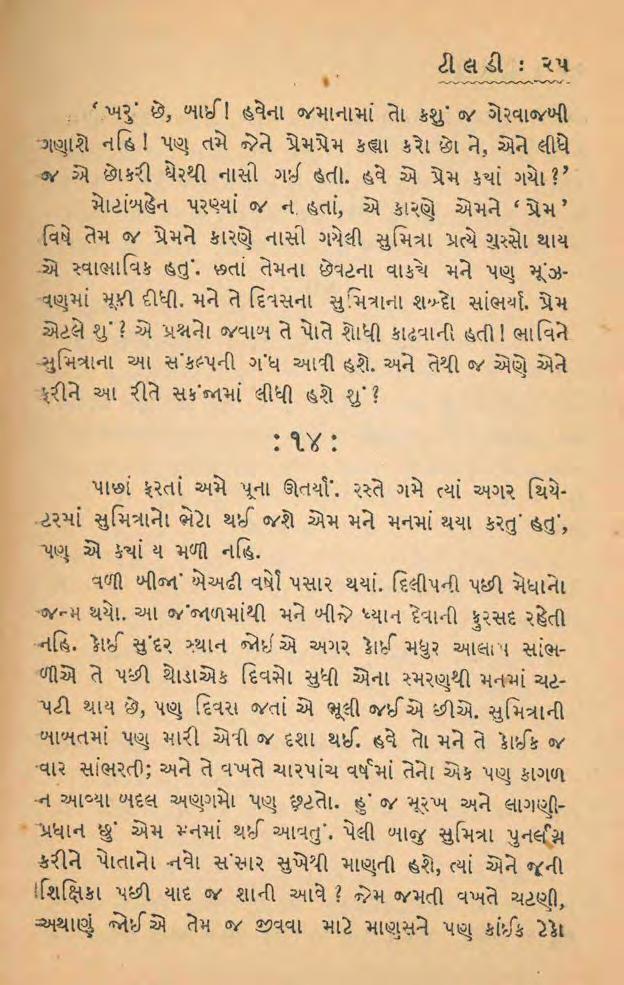 ટીલડી : ૨૫
‘ ખરું છે, બાઈ! હવેના જમાનામાં તો કશું જ ગેરવાજબી
ગણાશે નહિ! પણ તમે જેને પ્રેમપ્રેમ કહ્યા કરો છો ને, એને લીધે
જ એ છોકરી ઘેરથી નાસી ગઈ હતી. હવે એ પ્રેમ ક્યાં ગયો?’
મોટાંબહેન પરણ્યાં જ ન હતાં, એ કારણે એમને ‘ પ્રેમ ’
વિષે તેમ જ પ્રેમને કારણે નાસી ગયેલી સુમિત્રા પ્રત્યે ગુસ્સો થાય
એ સ્વાભાવિક હતું. છતાં તેમના છેવટના વાક્યે મને પણ મૂંઝ-
વણમાં મૂકી દીધી. મને તે દિવસના સુમિત્રાના શબ્દો સાંભર્યા. પ્રેમ
એટલે શું? એ પ્રશ્નનો જવાબ તે પોતે શોધી કાઢવાની હતી! ભાવિને
સુમિત્રાના આ સંકલ્પની ગંધ આવી હશે. અને તેથી જ એણે એને
ફરીને આ રીતે સકંજામાં લીધી હશે શું?
: ૧૪ :
પાછાં ફરતાં અમે પૂના ઊતર્યાં. રસ્તે ગમે ત્યાં અગર થિયે-
ટરમાં સુમિત્રાનો ભેટો થઈ જશે એમ મને મનમાં થયા કરતું હતું,
પણ એ ક્યાં ય મળી નહિ.
વળી બીજાં બેઅઢી વર્ષો પસાર થયાં. દિલીપની પછી મેધાનો
જન્મ થયો. આ જંજાળમાંથી મને બીજે ધ્યાન દેવાની ફુરસદ રહેતી
નહિ. કોઈ સુંદર સ્થાન જોઈએ અગર કોઈ મધુર આલાપ સાંભ-
ળીએ તે પછી થોડાએક દિવસો સુધી એના સ્મરણથી મનમાં ચટ-
પટી થાય છે, પણ દિવસ જતાં એ ભૂલી જઈએ છીએ. સુમિત્રાની
બાબતમાં પણ મારી એવી જ દશા થઈ. હવે તો મને તે કોઈક જ
વાર સાંભરતી; અને તે વખતે ચારપાંચ વર્ષમાં તેનો એક પણ કાગળ
ન આવ્યા બદલ અણગમો પણ છૂટતો. હું જ મૂરખ અને લાગણી-
પ્રધાન છું એમ મનમાં થઈ આવતું. પેલી બાજુ સુમિત્રા પુનર્લગ્ન
કરીને પોતાનો નવો સંસાર સુખેથી માણતી હશે, ત્યાં એને જૂની
શિક્ષિકા પછી યાદ જ શાની આવે? જેમ જમતી વખતે ચટણી,
અથાણું જોઈએ તેમ જ જીવવા માટે માણસને પણ કાંઈક ટેકો